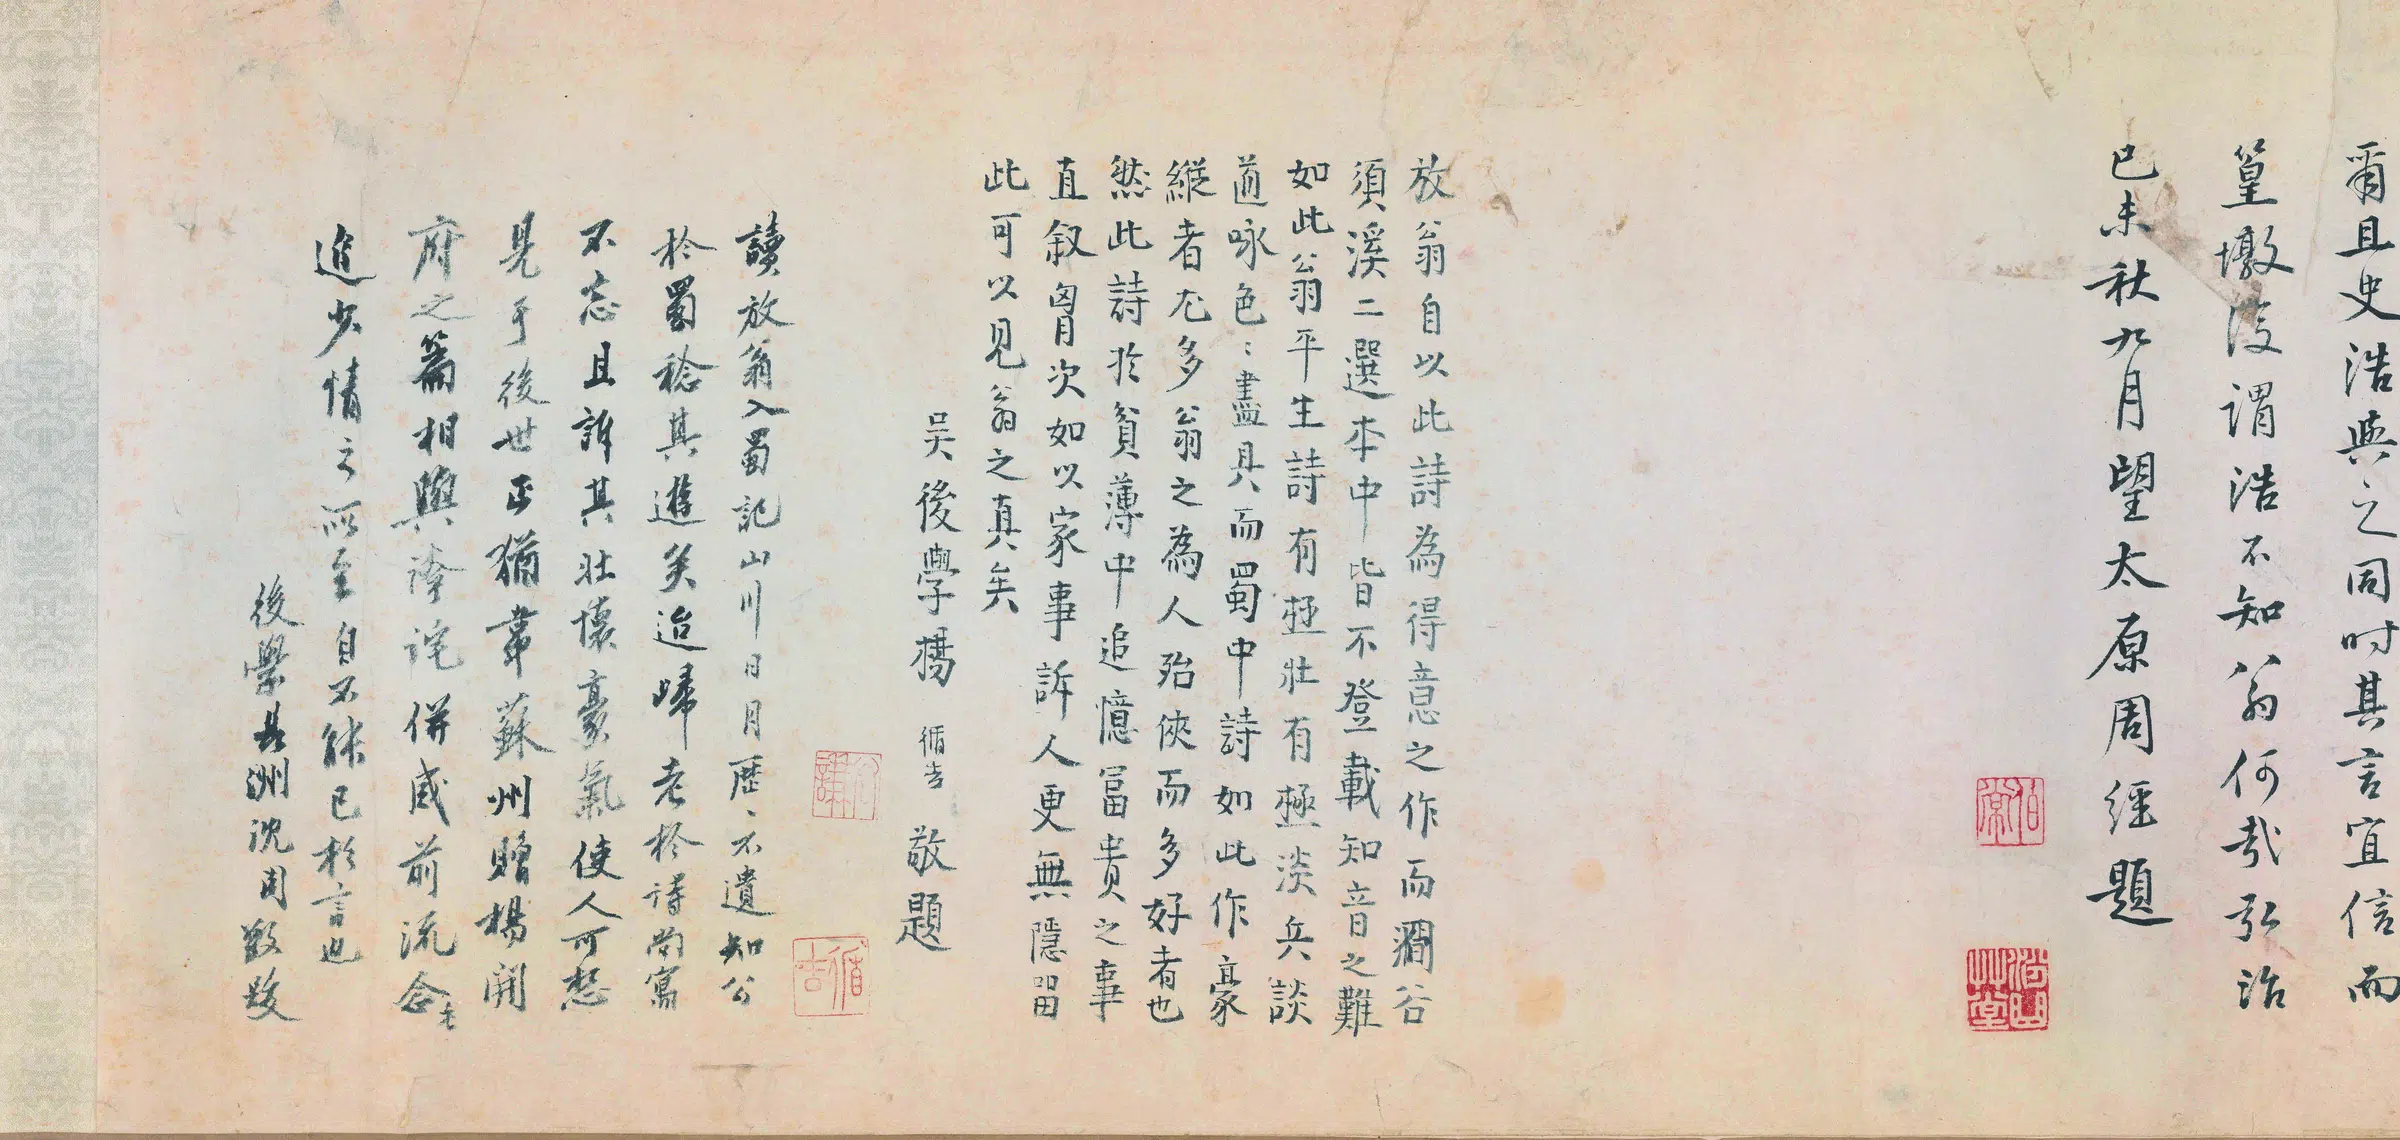 爾且史浩與之同時其言宜信而
篁墩復謂浩不知翁何哉弘治
己未秋九月望太原周經題
放翁自以此詩為得意之作而澗谷
須溪二選本中皆不登載知音之難
如此翁平生詩有極壯有極淡兵談
遒咏色〻盡具而蜀中詩如此作豪
縱者尤多翁之為人殆俠而多好者也
然此詩於貧薄中追憶富貴之事
直叙胷次如以家事訴人更無隱留
此可以見翁之真矣
吳後學楊循吉敬題
讀放翁入蜀記山川日月歷〻不遺知公
於蜀稔其遊矣迨歸老於詩尚寓
不忘且訴其壯懷豪氣使人可想
見于後世正猶韋蘇州贈楊開
府之篇相與誇詫併感前流令老
進少情之所至自不能已於言也
後學長洲沈周敬跋
伯常
循吉